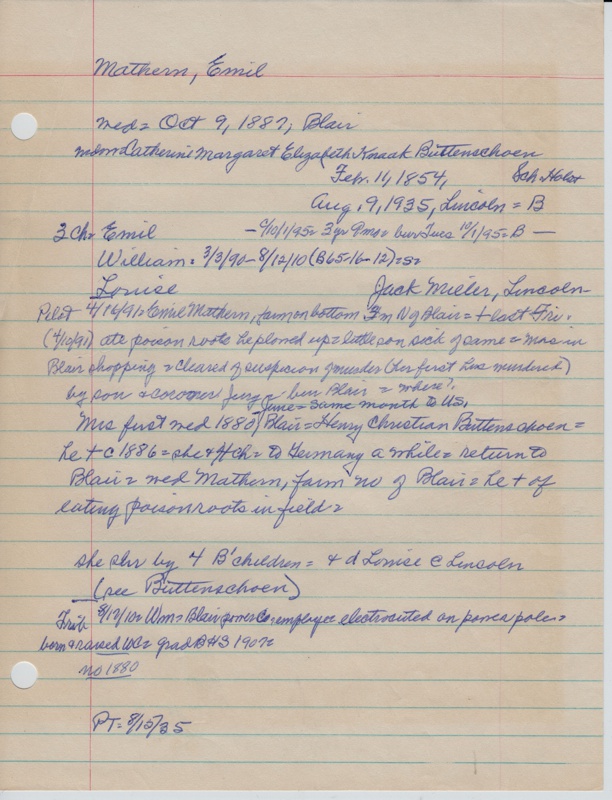 Mathern, Emil
wed = Oct 9, 1887, Blair
widow Catherine Margaret Elizabeth Knaak Buttenschoen
Feb. 11, 1854, Sch-Holst
Aug. 9, 1935, Lincoln = B
3 Ch = Emil - 9/10/1/95 = 3 yr 9 ms = bur Tues 10/1/95 = B -
William = 3/3/90 - 8/12/10 (B65-16-12) = s =
Louise Jack Mieler, Lincoln -
Pilot 4/16/91 = Emil Mathern, farm on bottom 3 m N of Blair = + last Fri.
(4/10/91) ate poison roots he plowed up = little son sick of same = Mrs in
Blair shopping = cleared of suspicion of murder (her first hus murdered)
by son & coroner jury = bur Blair = where?
June = same month to US.
Mrs first wed 1880 Blair = Henry Christian Buttenschoen =
he + c 1886 = she & 4 ch = to Germany a while = return to
Blair = wed Mathern, farm no of Blair = he + of
eating poison roots in field =
she sur by 4 B' children = & d Louise c Lincoln
(see Buttenschoen)
Trib 8/17/10 = Wm = Blair power Co. employee electrocuted on power pole =
born & raised WC = grad BHS 1907
no 1880
PT = 8/15/35